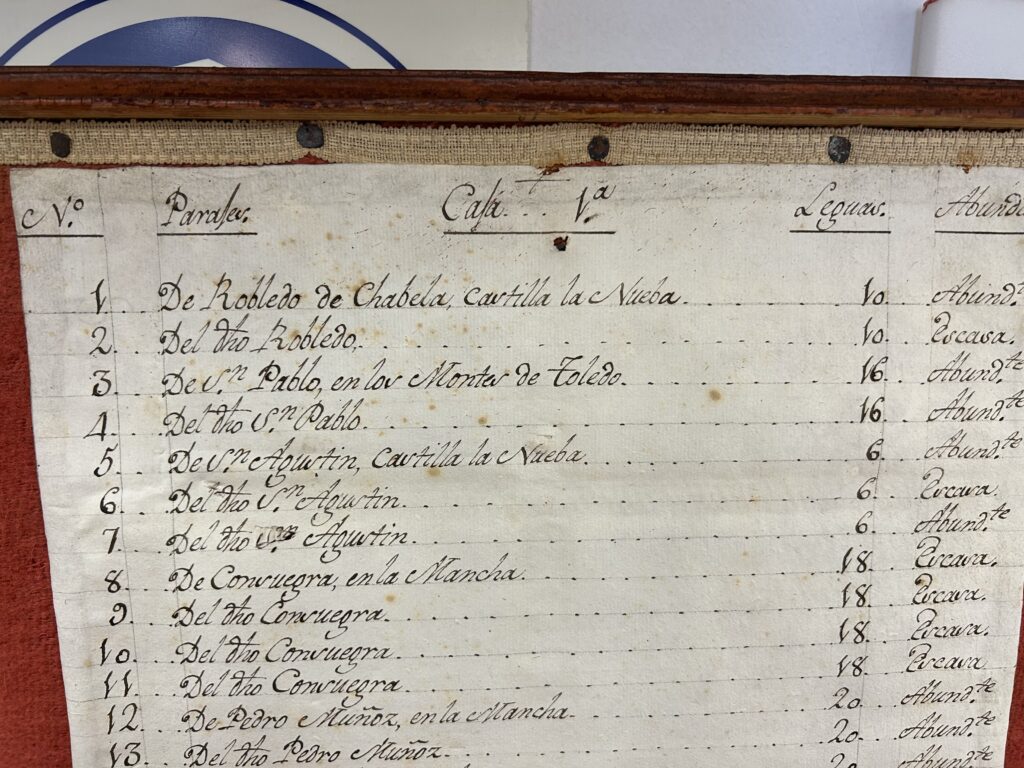 N.º Parajes. Caja... 1.ª Leguas. Abund
1. De Robledo de Chabela, Castilla la Nueba. 10. Abund.te
2. Del dho Robledo. 10. Escasa.
3. De S.n Pablo, en los Montes de Toledo. 16. Abund.te
4. Del dho S.n Pablo. 16. Abund.te
5. De S.n Agustin, Castilla la Nueba. 6. Abund.te
6. Del dho S.n Agustin. 6. Escasa.
7. Del dho S.n Agustin. 6. Abund.te
8. De Consuegra, en la Mancha. 18. Escasa.
9. Del dho Consuegra. 18. Escasa.
10. Del dho Consuegra. 18. Escasa.
11. Del dho Consuegra. 18. Escasa.
12. De Pedro Muñoz, en la Mancha. 20. Abund.te
13. Del dho Pedro Muñoz. 20. Abund.te
20 Abund.te